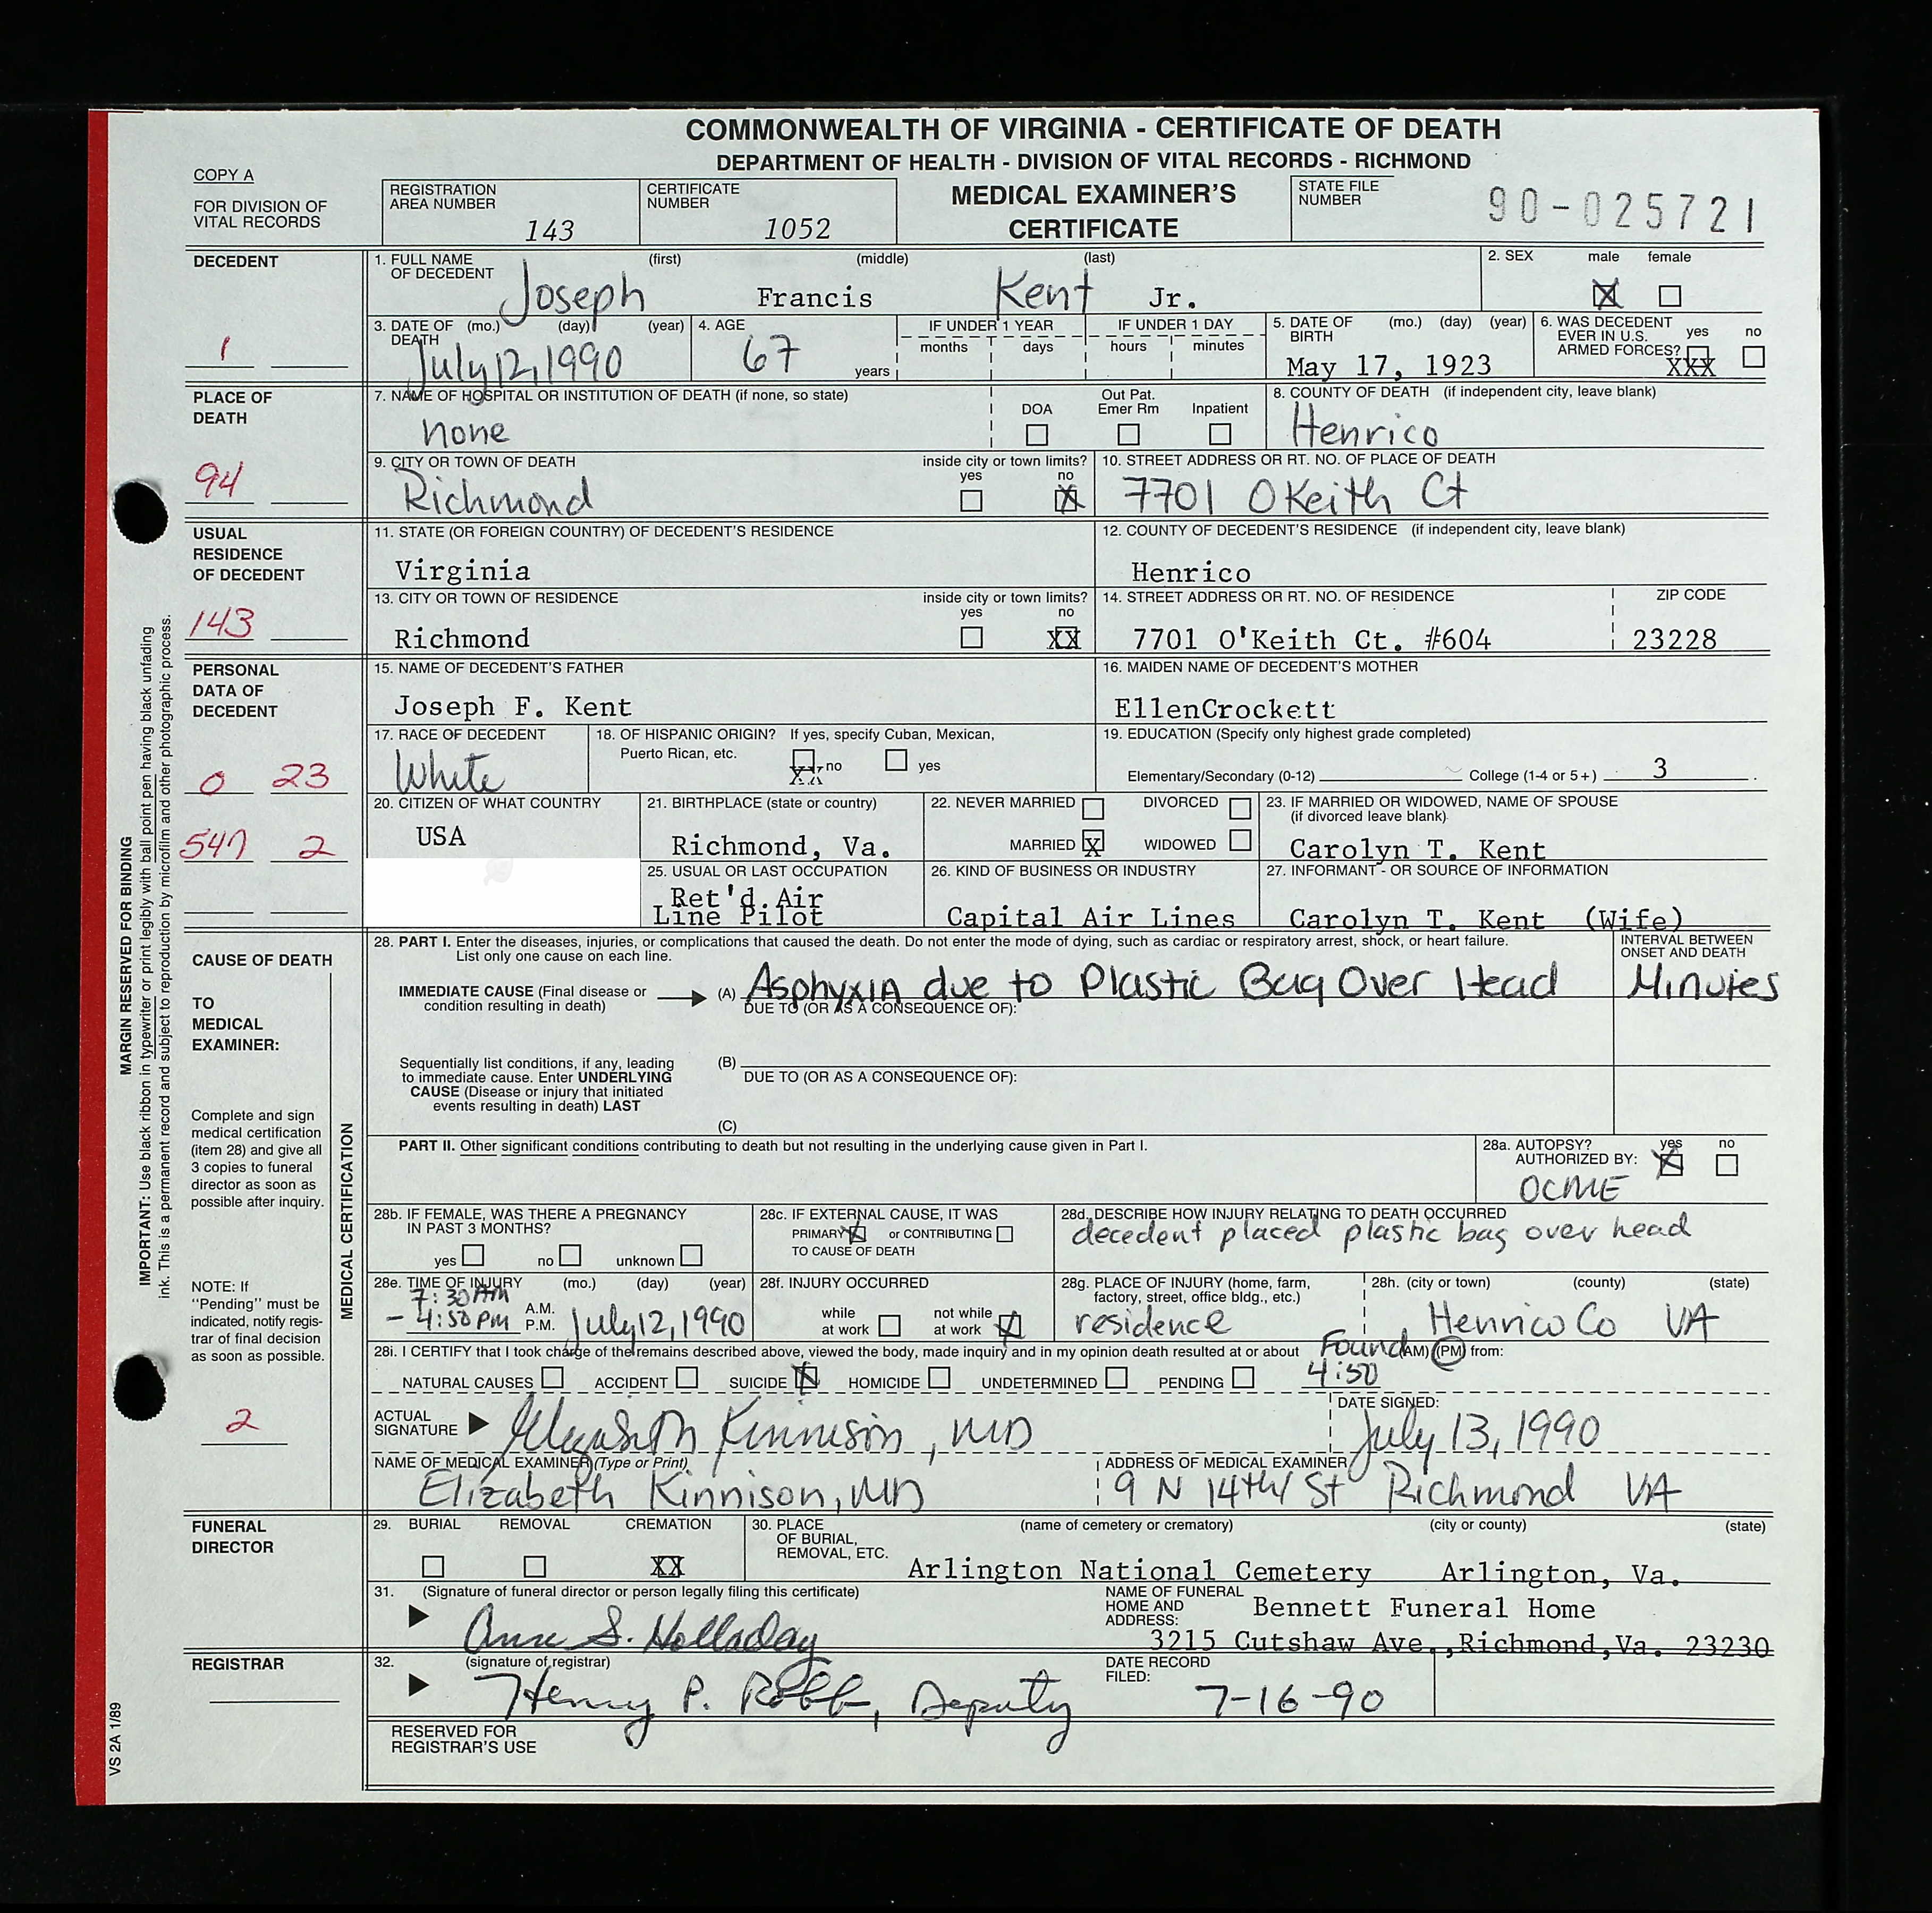 COMMONWEALTH OF VIRGINIA - CERTIFICATE OF DEATH
DEPARTMENT OF HEALTH - DIVISION OF VITAL RECORDS - RICHMOND
COPY A
FOR DIVISION OF
VITAL RECORDS
REGISTRATION
AREA NUMBER
143
CERTIFICATE
NUMBER
1052
MEDICAL EXAMINER'S
CERTIFICATE
STATE FILE
NUMBER
90-025721
DECEDENT
1
1. FULL NAME OF DECEDENT (first) (middle) (last)
Joseph Francis Kent Jr.
2. SEX male female
X
3. DATE OF DEATH (mo.) (day) (year)
July 12, 1990
4. AGE
67 years
IF UNDER 1 YEAR
months days
IF UNDER 1 DAY
hours minutes
5. DATE OF BIRTH (mo.) (day) (year)
May 17, 1923
6. WAS DECEDENT
EVER IN U.S.
ARMED FORCES? yes no
XXX
PLACE OF
DEATH
94
7. NAME OF HOSPITAL OR INSTITUTION OF DEATH (if none, so state)
none
DOA
Out Pat.
Emer Rm
Inpatient
8. COUNTY OF DEATH (if independent city, leave blank)
Henrico
9. CITY OR TOWN OF DEATH
Richmond
inside city or town limits?
yes no
X
10. STREET ADDRESS OR RT. NO. OF PLACE OF DEATH
7701 OKeith Ct
USUAL
RESIDENCE
OF DECEDENT
143
11. STATE (OR FOREIGN COUNTRY) OF DECEDENT'S RESIDENCE
Virginia
12. COUNTY OF DECEDENT'S RESIDENCE (if independent city, leave blank)
Henrico
13. CITY OR TOWN OF RESIDENCE
Richmond
inside city or town limits?
yes no
XX
14. STREET ADDRESS OR RT. NO. OF RESIDENCE
7701 O'Keith Ct. #604
ZIP CODE
23228
PERSONAL
DATA OF
DECEDENT
0 23
547 2
15. NAME OF DECEDENT'S FATHER
Joseph F. Kent
16. MAIDEN NAME OF DECEDENT'S MOTHER
EllenCrockett
17. RACE OF DECEDENT
White
18. OF HISPANIC ORIGIN? If yes, specify Cuban, Mexican,
Puerto Rican, etc.
XX no yes
19. EDUCATION (Specify only highest grade completed)
Elementary/Secondary (0-12) College (1-4 or 5+) 3
20. CITIZEN OF WHAT COUNTRY
USA
21. BIRTHPLACE (state or country)
Richmond, Va.
22. NEVER MARRIED DIVORCED
MARRIED X WIDOWED
23. IF MARRIED OR WIDOWED, NAME OF SPOUSE
(if divorced leave blank)
Carolyn T. Kent
25. USUAL OR LAST OCCUPATION
Ret'd Air
Line Pilot
26. KIND OF BUSINESS OR INDUSTRY
Capital Air Lines
27. INFORMANT - OR SOURCE OF INFORMATION
Carolyn T. Kent (Wife)
CAUSE OF DEATH
TO
MEDICAL
EXAMINER:
Complete and sign
medical certification
(item 28) and give all
3 copies to funeral
director as soon as
possible after inquiry.
NOTE: If
"Pending" must be
indicated, notify regis-
trar of final decision
as soon as possible.
2
MEDICAL CERTIFICATION
28. PART I. Enter the diseases, injuries, or complications that caused the death. Do not enter the mode of dying, such as cardiac or respiratory arrest, shock, or heart failure.
List only one cause on each line.
INTERVAL BETWEEN
ONSET AND DEATH
IMMEDIATE CAUSE (Final disease or
condition resulting in death)
(A) Asphyxia due to Plastic Bag Over Head
Minutes
DUE TO (OR AS A CONSEQUENCE OF):
Sequentially list conditions, if any, leading
to immediate cause. Enter UNDERLYING
CAUSE (Disease or injury that initiated
events resulting in death) LAST
(B)
DUE TO (OR AS A CONSEQUENCE OF):
(C)
PART II. Other significant conditions contributing to death but not resulting in the underlying cause given in Part I.
28a. AUTOPSY? yes no
AUTHORIZED BY: X
OCME
28b. IF FEMALE, WAS THERE A PREGNANCY
IN PAST 3 MONTHS?
yes no unknown
28c. IF EXTERNAL CAUSE, IT WAS
PRIMARY X or CONTRIBUTING
TO CAUSE OF DEATH
28d. DESCRIBE HOW INJURY RELATING TO DEATH OCCURRED
decedent placed plastic bag over head
28e. TIME OF INJURY (mo.) (day) (year)
7:30 AM
- 4:50 PM A.M. P.M. July 12, 1990
28f. INJURY OCCURRED
while
at work
not while
at work X
28g. PLACE OF INJURY (home, farm,
factory, street, office bldg., etc.)
residence
28h. (city or town) (county) (state)
Henrico Co VA
28i. I CERTIFY that I took charge of the remains described above, viewed the body, made inquiry and in my opinion death resulted at or about Found 4:50 (AM) (PM) from:
NATURAL CAUSES ACCIDENT SUICIDE X HOMICIDE UNDETERMINED PENDING
ACTUAL
SIGNATURE
Elizabeth Kinnison, MD
DATE SIGNED:
July 13, 1990
NAME OF MEDICAL EXAMINER (Type or Print)
Elizabeth Kinnison, MD
ADDRESS OF MEDICAL EXAMINER
9 N 14th St Richmond VA
FUNERAL
DIRECTOR
29. BURIAL REMOVAL CREMATION
XX
30. PLACE
OF BURIAL,
REMOVAL, ETC.
(name of cemetery or crematory) (city or county) (state)
Arlington National Cemetery Arlington, Va.
31. (Signature of funeral director or person legally filing this certificate)
Anne S. Holladay
NAME OF FUNERAL
HOME AND
ADDRESS:
Bennett Funeral Home
3215 Cutshaw Ave.,Richmond,Va. 23230
REGISTRAR
32. (signature of registrar)
Henry P. Robb, Deputy
DATE RECORD
FILED:
7-16-90
RESERVED FOR
REGISTRAR'S USE
MARGIN RESERVED FOR BINDING
IMPORTANT: Use black ribbon in typewriter or print legibly with ball point pen having black unfading
ink. This is a permanent record and subject to reproduction by microfilm and other photographic process.
VS 2A 1/89